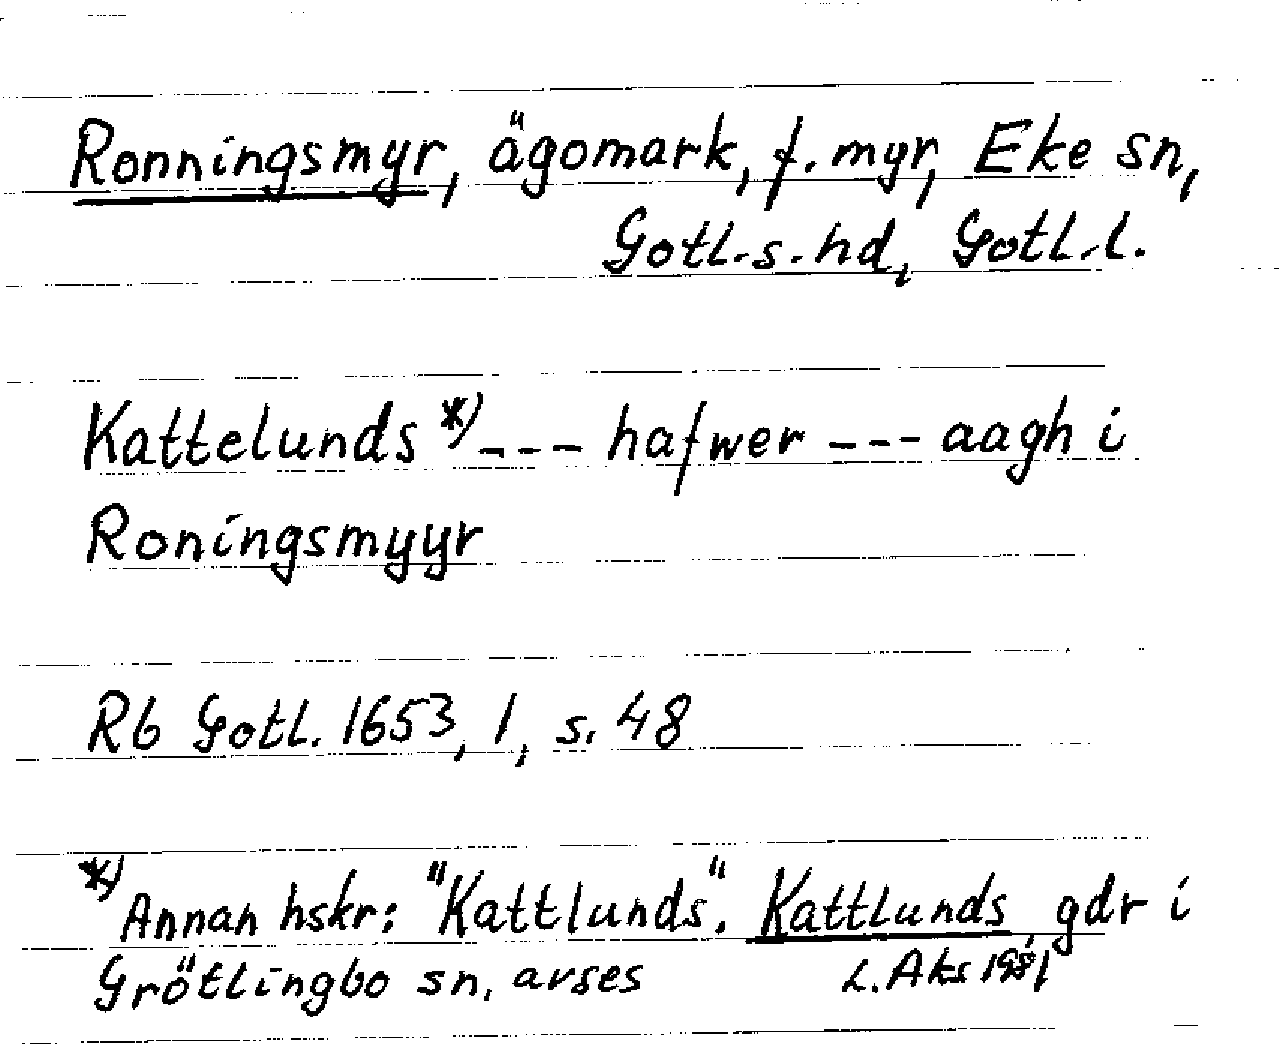 Ronningsmyr, ägomark, f. myr, Eke sn,
Gotl.s.hd, Gotl.l.
Kattelunds *) --- hafwer --- aagh i
Roningsmyyr
Rb Gotl. 1653, 1, s. 48
*) Annan hskr: "Kattlunds". Kattlunds, gdr i
Grötlingbo sn, avses
L. Aks